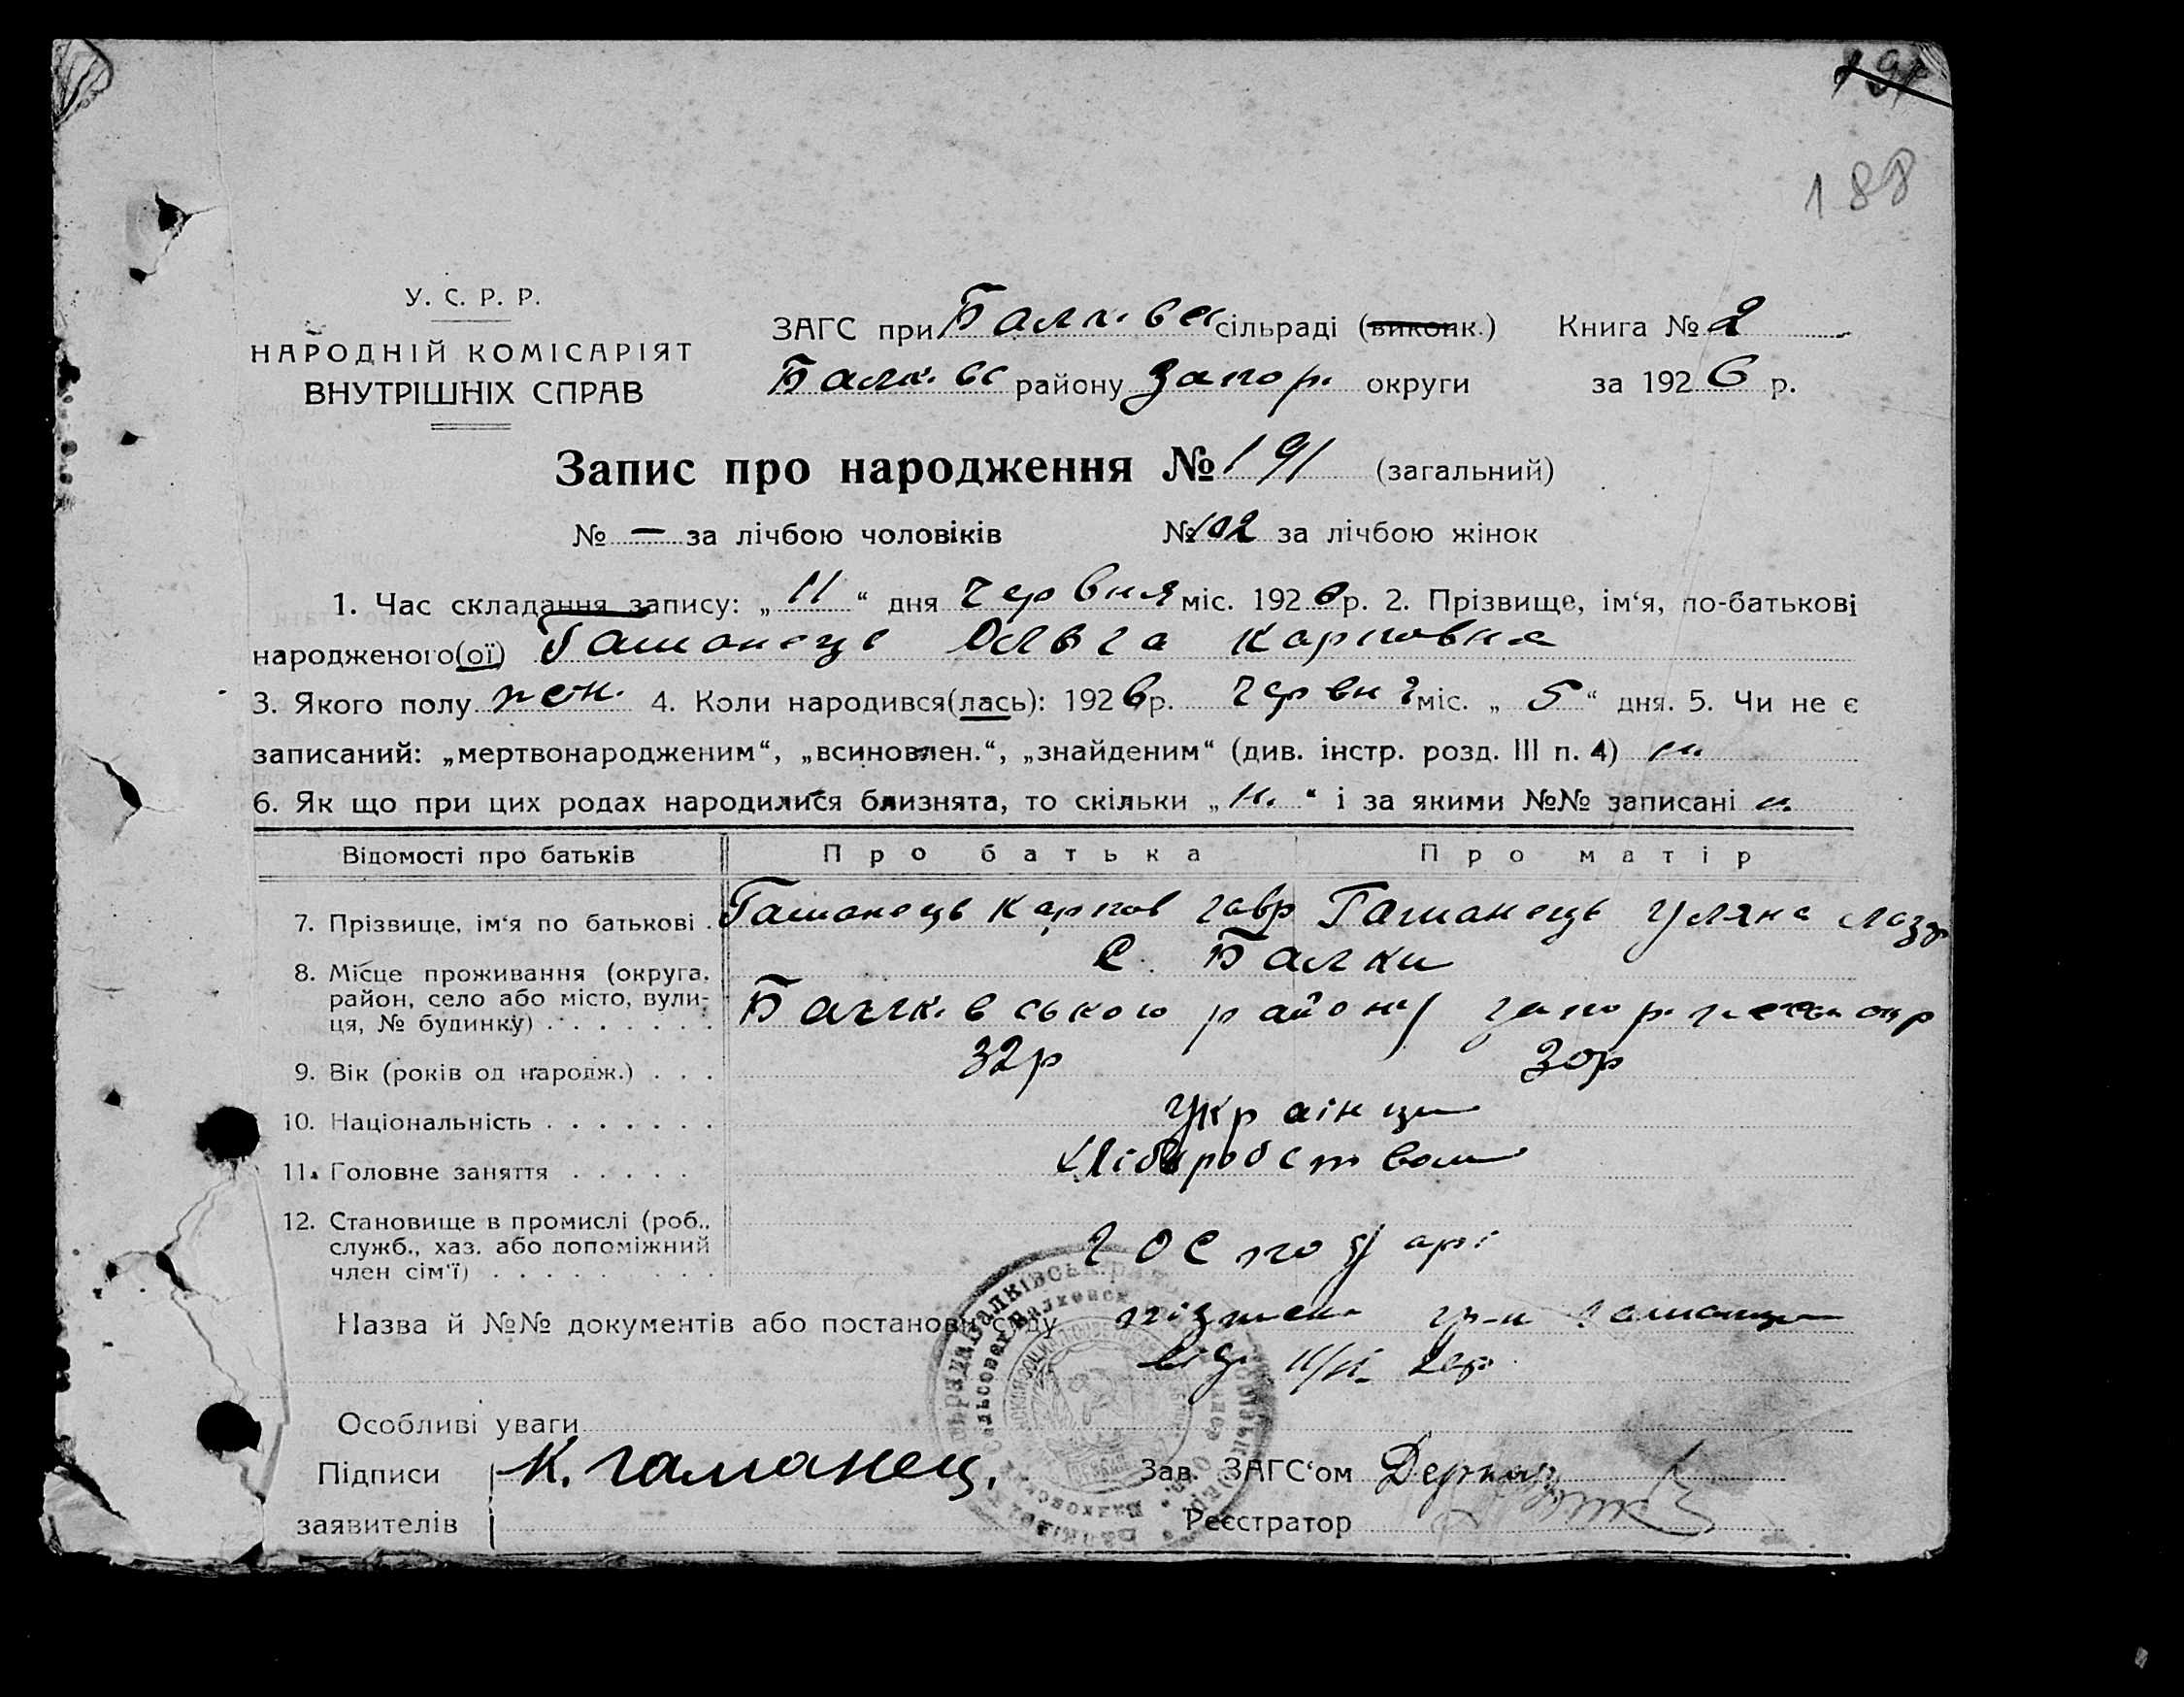 191
188
У. С. Р. Р.
НАРОДНІЙ КОМІСАРІЯТ
ВНУТРІШНІХ СПРАВ
ЗАГС при Балківск сільраді (виконк.) Книга № 2
Балк. вс району Запор. округи за 1926 р.
Запис про народження № 191 (загальний)
№ — за лічбою чоловіків № 102 за лічбою жінок
1. Час складання запису: „ 11 “ дня червня міс. 1926 р. 2. Прізвище, ім‘я, по-батькові
народженого(ої) Гаманець Ольга Карповна
3. Якого полу жен. 4. Коли народився(лась): 1926 р. червня міс. „ 5 “ дня. 5. Чи не є
записаний: „мертвонародженим“, „всиновлен.“, „знайденим“ (див. інстр. розд. III п. 4) н.
6. Як що при цих родах народилися близнята, то скільки „ н. “ і за якими №№ записані н.
Відомості про батьків Про батька Про матір
7. Прізвище, ім‘я по батькові . Гаманець Карпов Гавр Гаманець Уляна Лазар
8. Місце проживання (округа, район, село або місто, вулиця, № будинку) с. Балки
Балківського району Запоріжськ окр
9. Вік (років од народж.) . . . 32р 30р
10. Національність . . . . . . . Українци
11. Головне заняття . . . . . Хліборобством
12. Становище в промислі (роб.,
служб., хаз. або допоміжний
член сім‘ї) . . . . . . . . . господарі
Назва й №№ документів або постанови суду гр-н Гаманця
від 11/VI 26р.
Особливі уваги
Підписи К. Гаманец. Зав. ЗАГС‘ом Деркач
заявителів Реєстратор